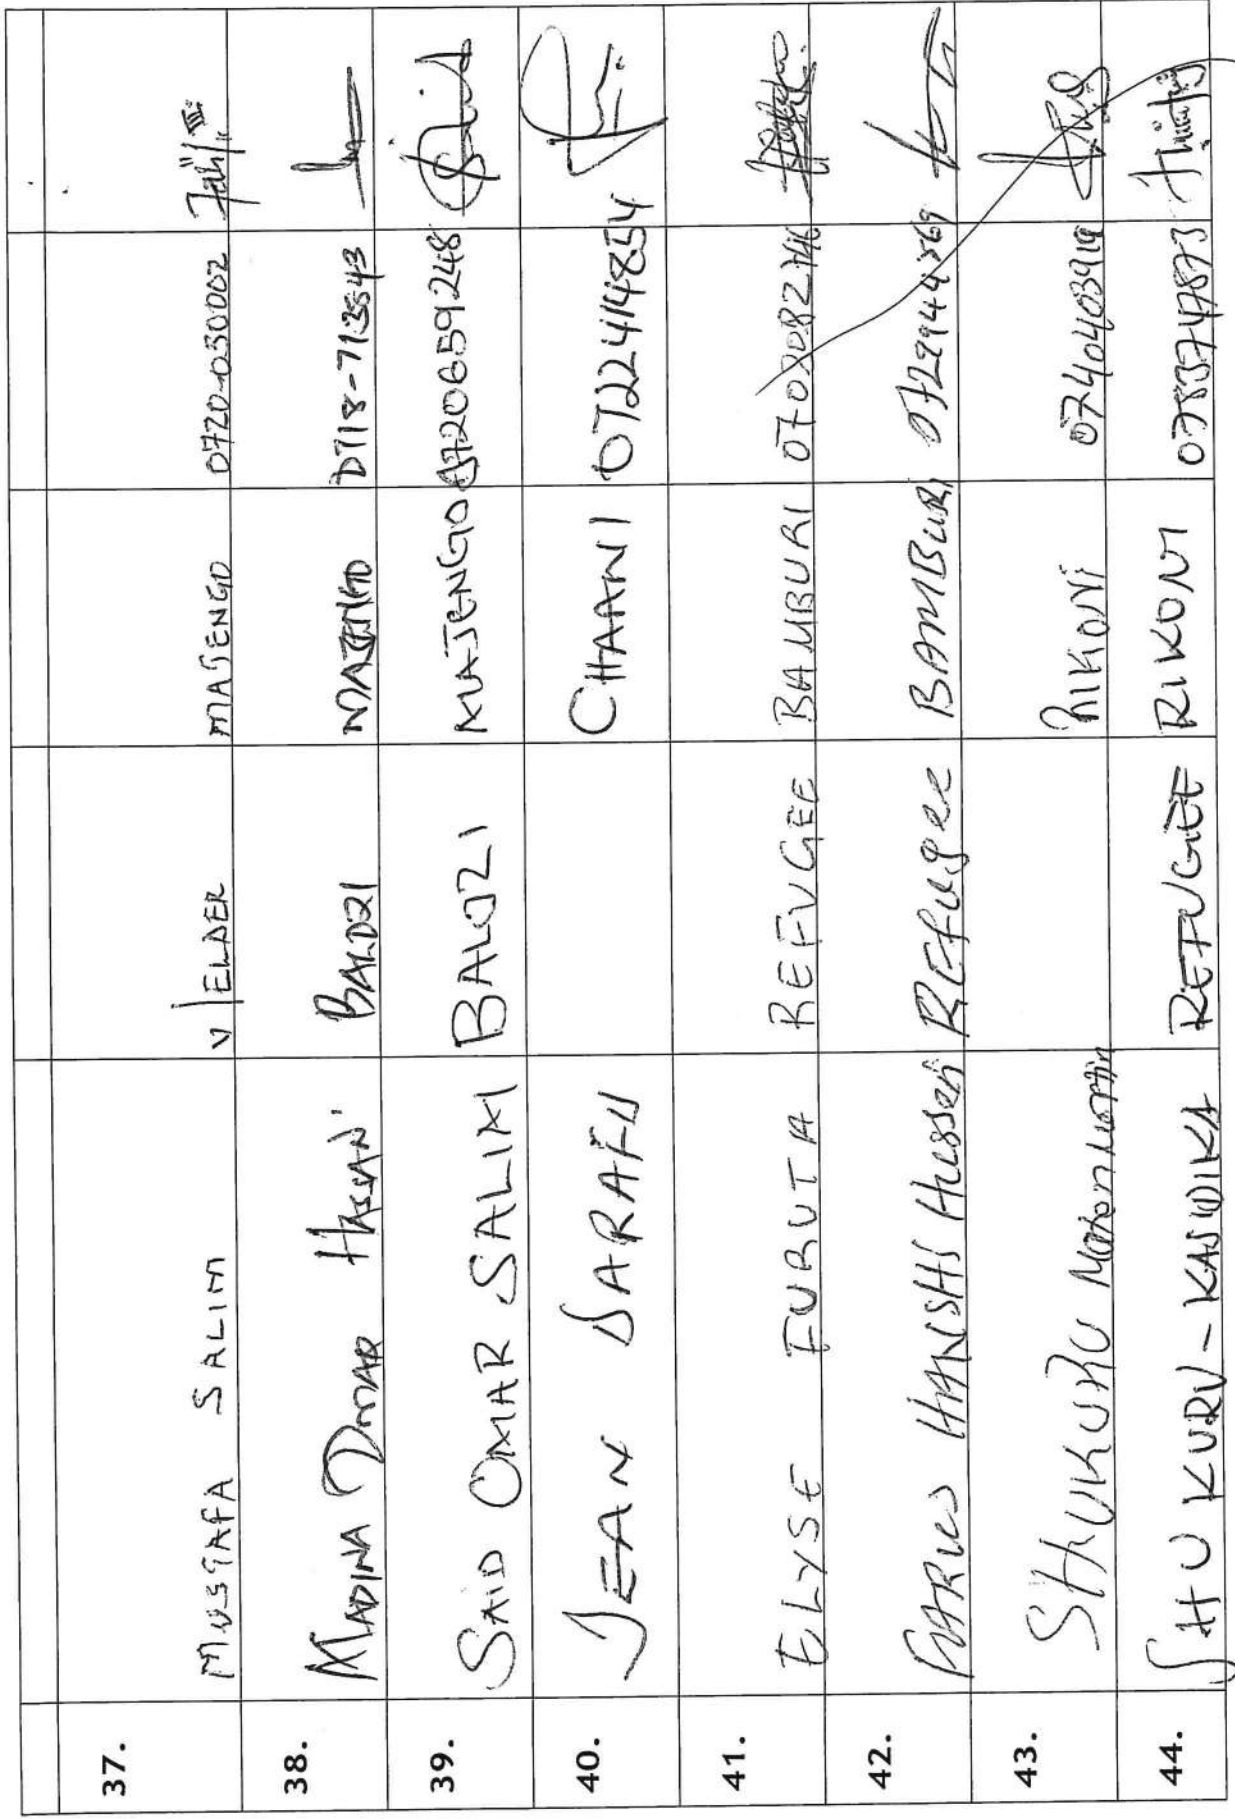 37. MUSTAFA SALIM V/ELDER MAJENGO 0720-030002
38. MADINA OMAR HASSAN BALOZI MAJENGO 0718-713543
39. SAID OMAR SALIM BALOZI MAJENGO 0720659248
40. JEAN SARAFU CHAANI 0722414854
41. ELYSE FURUTA REFUGEE BAMBURI
42. HANISHI Hussen REfugee BAMBURI
43. SHUKURU LIKONI 0740403919
44. SHUKURU-KASWIKA REFUGEE LIKONI